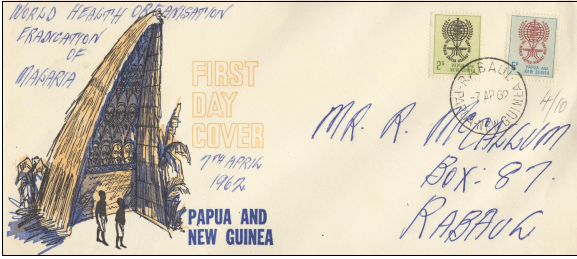 WORLD HEALTH ORGANISATION
ERADICATION
OF
MALARIA
FIRST
DAY
COVER
7TH APRIL
1962
PAPUA AND
NEW GUINEA
2s
PAPUA &
NEW GUINEA
RABAUL
-7 AP 62
NEW GUINEA
4/10
MR. R. McCALLUM
BOX: 87.
RABAUL